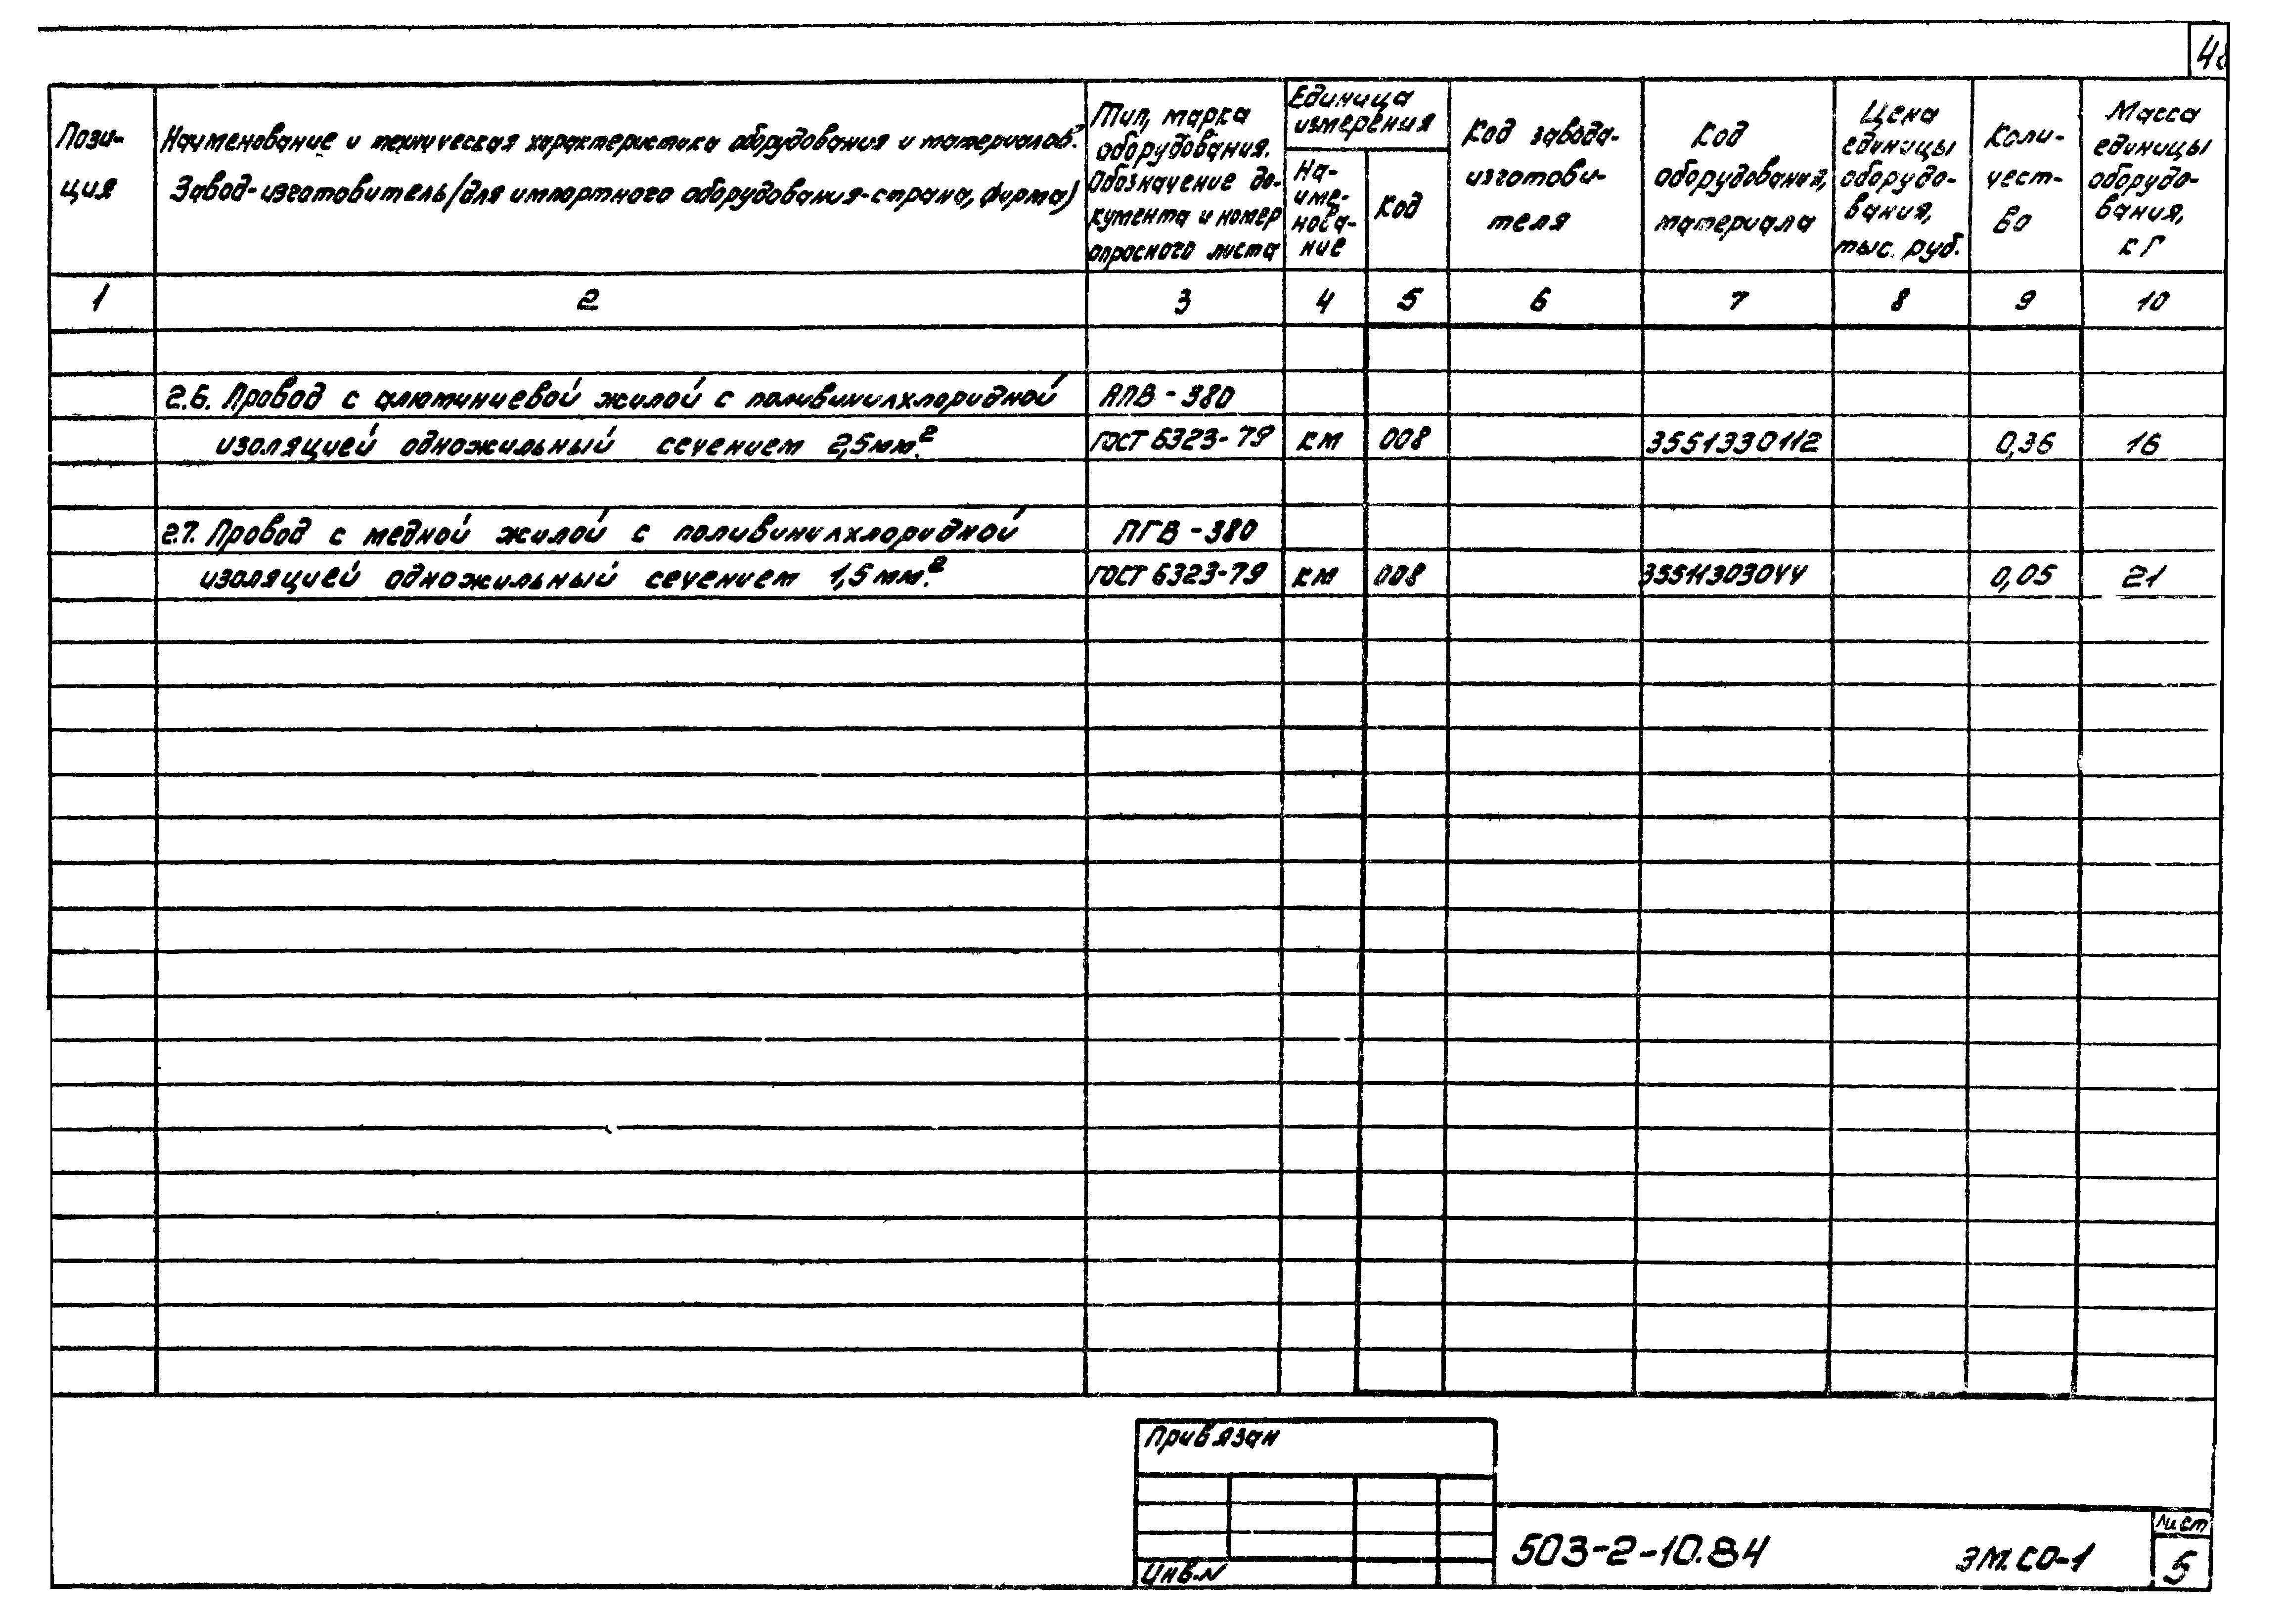 Пози-
ция
Наименование и техническая характеристика оборудования и материалов.
Завод-изготовитель/для импортного оборудования-страна, фирма)
Тип, марка
оборудования.
Обозначение до-
кумента и номер
опросного листа
Единица
измерения
На-
име-
нова-
ние
Код
Код завода-
изготови-
теля
Код
оборудования,
материала
Цена
единицы
оборудо-
вания,
тыс. руб.
Коли-
чест-
во
Масса
единицы
оборудо-
вания,
кГ
1 2 3 4 5 6 7 8 9 10
2.6. Провод с алюминиевой жилой с поливинилхлоридной АПВ-380
изоляцией одножильный сечением 2,5мм² ГОСТ 6323-79 км 008 3551330112 0,36 16
2.7. Провод с медной жилой с поливинилхлоридной ПГВ-380
изоляцией одножильный сечением 1,5мм² ГОСТ 6323-79 км 008 3551130304 0,05 21
Привязан
Инв.N
503-2-10.84 ЭМ.СО-1
Лист
5